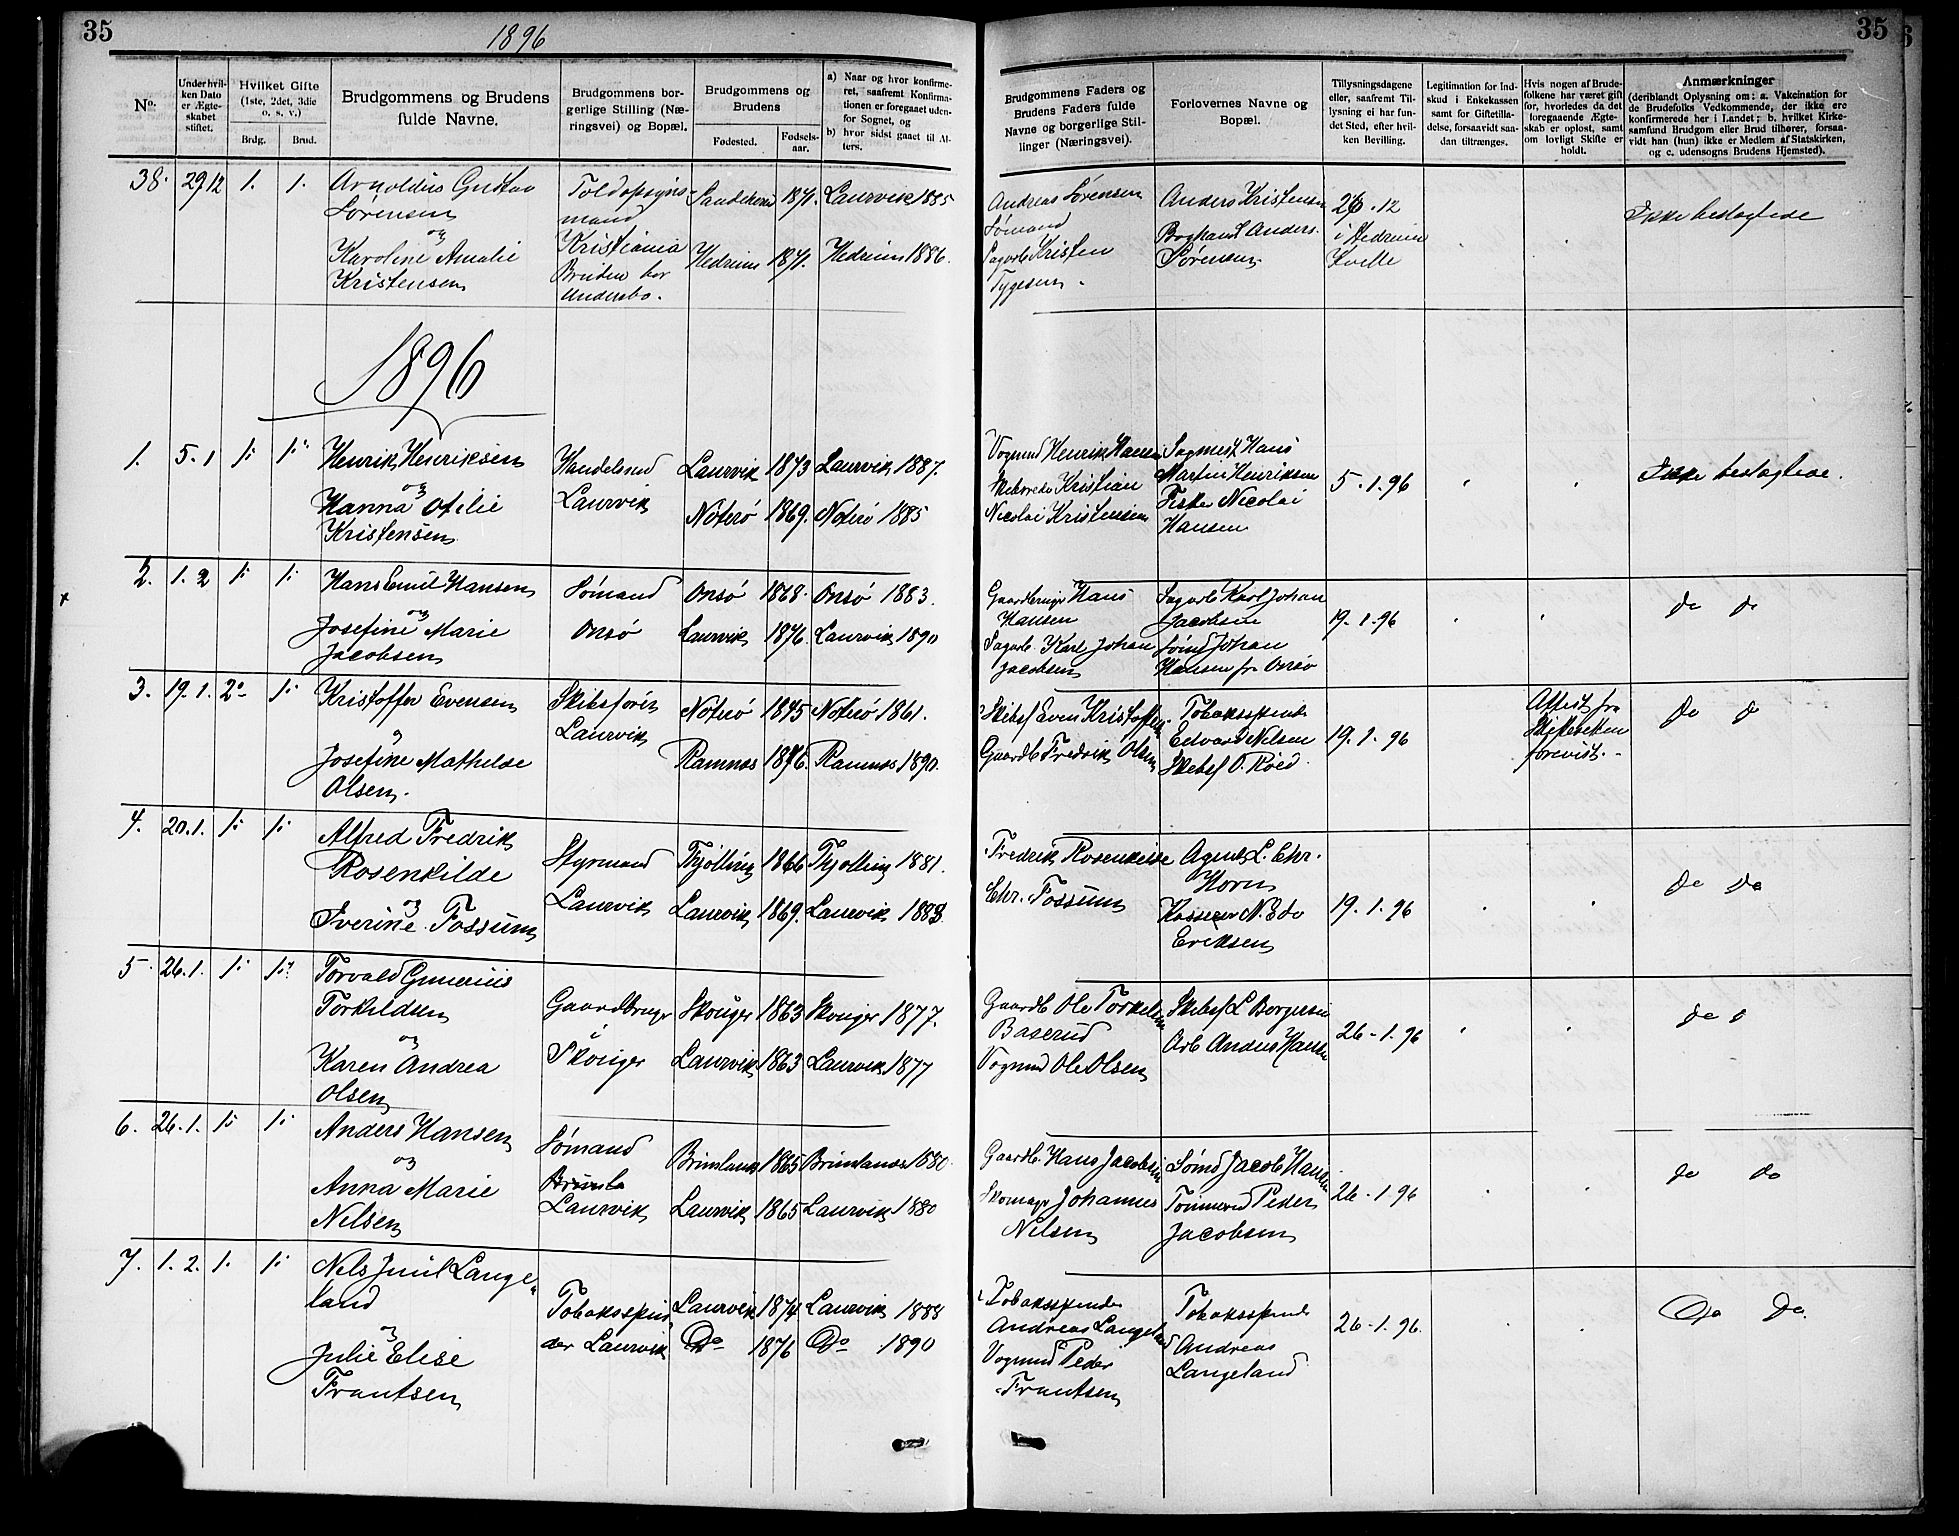 35
1896
No.
Under hvil-
ken Dato
er Ægte-
skabet
stiftet.
Hvilket Gifte
(1ste, 2det, 3die
o. s. v.)
Brdg.
Brud.
Brudgommens og Brudens
fulde Navne.
Brudgommens bor-
gerlige Stilling (Næ-
ringsvei) og Bopæl.
Brudgommens og
Brudens
Fødested.
Fødsels-
aar.
a) Naar og hvor konfirme-
ret, saafremt Konfirma-
tionen er foregaaet uden-
for Sognet, og
b) hvor sidst gaaet til Al-
ters.
38. 29 12 1. 1.
Arnoldus Gustav
Sørensen
og
Karoline Amalie
Kristensen
Toldopsyns-
mand
Kristiania
Bruden bor
Undersbo.
Sandeherred 1871. Laurvik 1885
Hedrum 1871. Hedrum 1886.
1896
1. 5. 1 1: 1:
Henrik Henriksen
og
Hanna Otilie
Kristensen
Handelsmd
Laurvik
Laurvik 1873 Laurvik 1887.
Nøterø 1869. Nøterø 1885
2. 1. 2 1: 1:
Hans Emil Hansen
og
Josefine Marie
Jacobsen
Sømand
Onsø
Onsø 1868. Onsø 1883.
Laurvik 1876. Laurvik 1890
3. 19. 1. 2. 1:
Kristoffer Evensen
og
Josefine Mathilde
Olsen.
Skibsfører
Laurvik
Nøterø 1845 Nøterø 1861.
Ramnes 1876. Ramnes 1890.
4. 20. 1. 1: 1:
Alfred Fredrik
Rosenkilde
og
Iverine Fossum
Styrmand
Laurvik
Thjølling 1866 Thjølling 1881.
Laurvik 1869. Laurvik 1883.
5. 26. 1. 1: 1:
Torvald Gunerius
Torkildsen
og
Karen Andrea
Olsen
Gaardbruger
Skouger
Skouger 1863 Skouger 1877.
Laurvik 1863 Laurvik 1877
6. 26. 1. 1: 1:
Anders Hansen
og
Anna Marie
Nilsen
Sømand
Brunla
Laurvik
Brunlanæs 1865 Brunlanæs 1880.
Laurvik 1865 Laurvik 1880
7. 1. 2. 1. 1:
Nils Juul Lange-
land
og
Julie Elise
Frantsen
Tobaksspin
der Laurvik
Laurvik 1874 Laurvik 1888
Do 1876 Do 1890
35
Brudgommens Faders og
Brudens Faders fulde
Navne og borgerlige Stil-
linger (Næringsvei).
Forlovernes Navne og
Bopæl.
Tillysningsdagene
eller, saafremt Til-
lysning ei har fun-
det Sted, efter hvil-
ken Bevilling.
Legitimation for Ind-
skud i Enkekassen
samt for Giftetilla-
delse, forsaavidt saa-
dan tiltrænges.
Hvis nogen af Brude-
folkene har været gift
før, hvorledes da det
foregaaende Ægte-
skab er opløst, samt
om lovligt Skifte er
holdt.
Anmærkninger
(deriblandt Oplysning om: a. Vakcination for
de Brudefolks Vedkommende, der ikke ere
konfirmerede her i Landet; b. hvilket Kirke-
samfund Brudgom eller Brud tilhører, forsaa-
vidt han (hun) ikke er Medlem af Statskirken,
og c. udensogns Brudens Hjemsted).
Andreas Sørensen
Sømand
Sagarb Kristen
Tygesen.
Anders Kristensen
Boghand Anders.
Sørensen
26. 12
i Hedrum
Ikke beslægtede
Vogmd Henrik Hansen
Kristian
Nicolai Kristensen
Sagmest Hans
Martin Henriksen
Fisker Nicolai
Hansen
5. 1. 96
Ikke beslægtede.
Gaardbruger Hans
Hansen
Sagarb. Karl Johan
Jacobsen
Sagarb Karl Johan
Jacobsen
Sømd Johan
Hansen fr Onsø
19. 1. 96
do do
Skibsf Even Kristoffersen
Gaardb Fredrik Olsen
Tobaksspinder
Edvard Nilsen
Skibsf O. Röed
19. 1. 96
Attest fra
Skifteretten
forevist.
do do
Fredrik Rosenkilde
Chr. Fossum
Agent L. Chr.
Horn
Kasserer N. Edv
Eriksen
19. 1. 96
do do
Gaardb Ole Torkelsen
Baserud
Vogmd Ole Olsen
Skibsf L Borgersen
Arb Anders Hansen
26-1. 96
do o
Gaardb. Hans Jacobsen
Skomager Johannes
Nilsen
Sømd Jacob Hansen
Tømmermd Peder
Jacobsen
26-1. 96
do do
Tobaksspinder
Andreas Langeland
Vogmd Peder
Frantsen
Tobaksspind
Andreas
Langeland
26-1. 96.
Do Do.